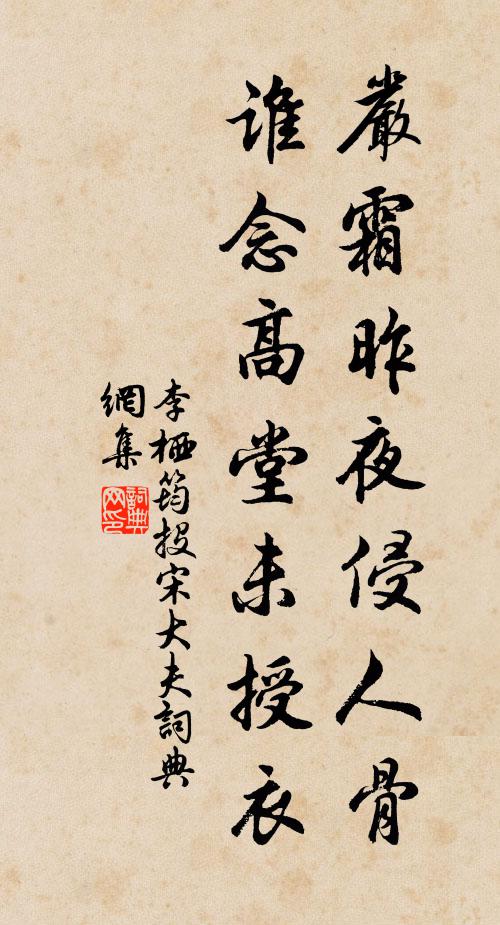 嚴霜昨夜侵人骨
誰念高堂未授衣
李栖筠投宋大夫詞典
網集
詞典
网印